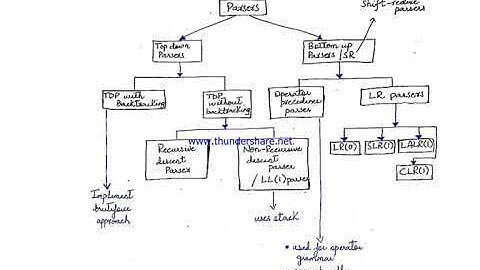 Parsers
Shift-reduce
parsers
Top down
Parsers
Bottom up
Parsers /SR
TDP with
Backtracking
TDP
without
backtracking
Operator
precedence
parser
LR parsers
www.thundershare.net
Recursive
descent
Parser
Non-Recursive
descent
parser
/ LL(1) parser
LR(0)
SLR(1)
LALR(1)
CLR(1)
Implement
bruteforce
approach
uses stack
• used for operator
grammar